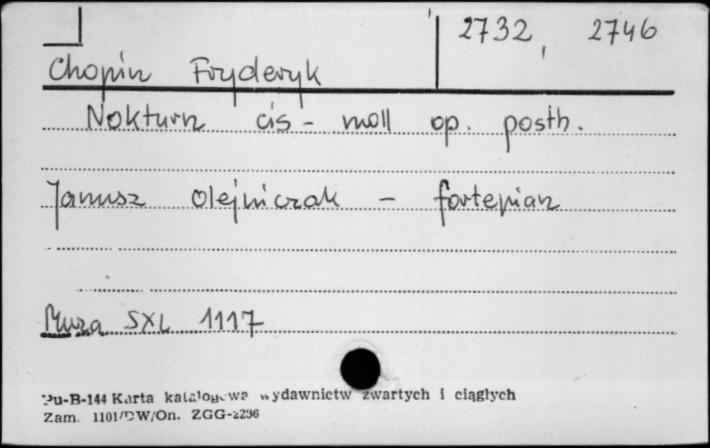 2732, 2746
Chopin Fryderyk
Nokturn cis-moll op. posth.
Janusz Olejniczak - fortepian
Muza SXL 1117
Pu-B-144 Karta katalogowa wydawnictw zwartych i ciągłych
Zam. 1101/DW/On. ZGG-2296